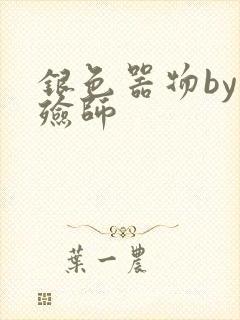 銀色器物by
殮師
葉一農